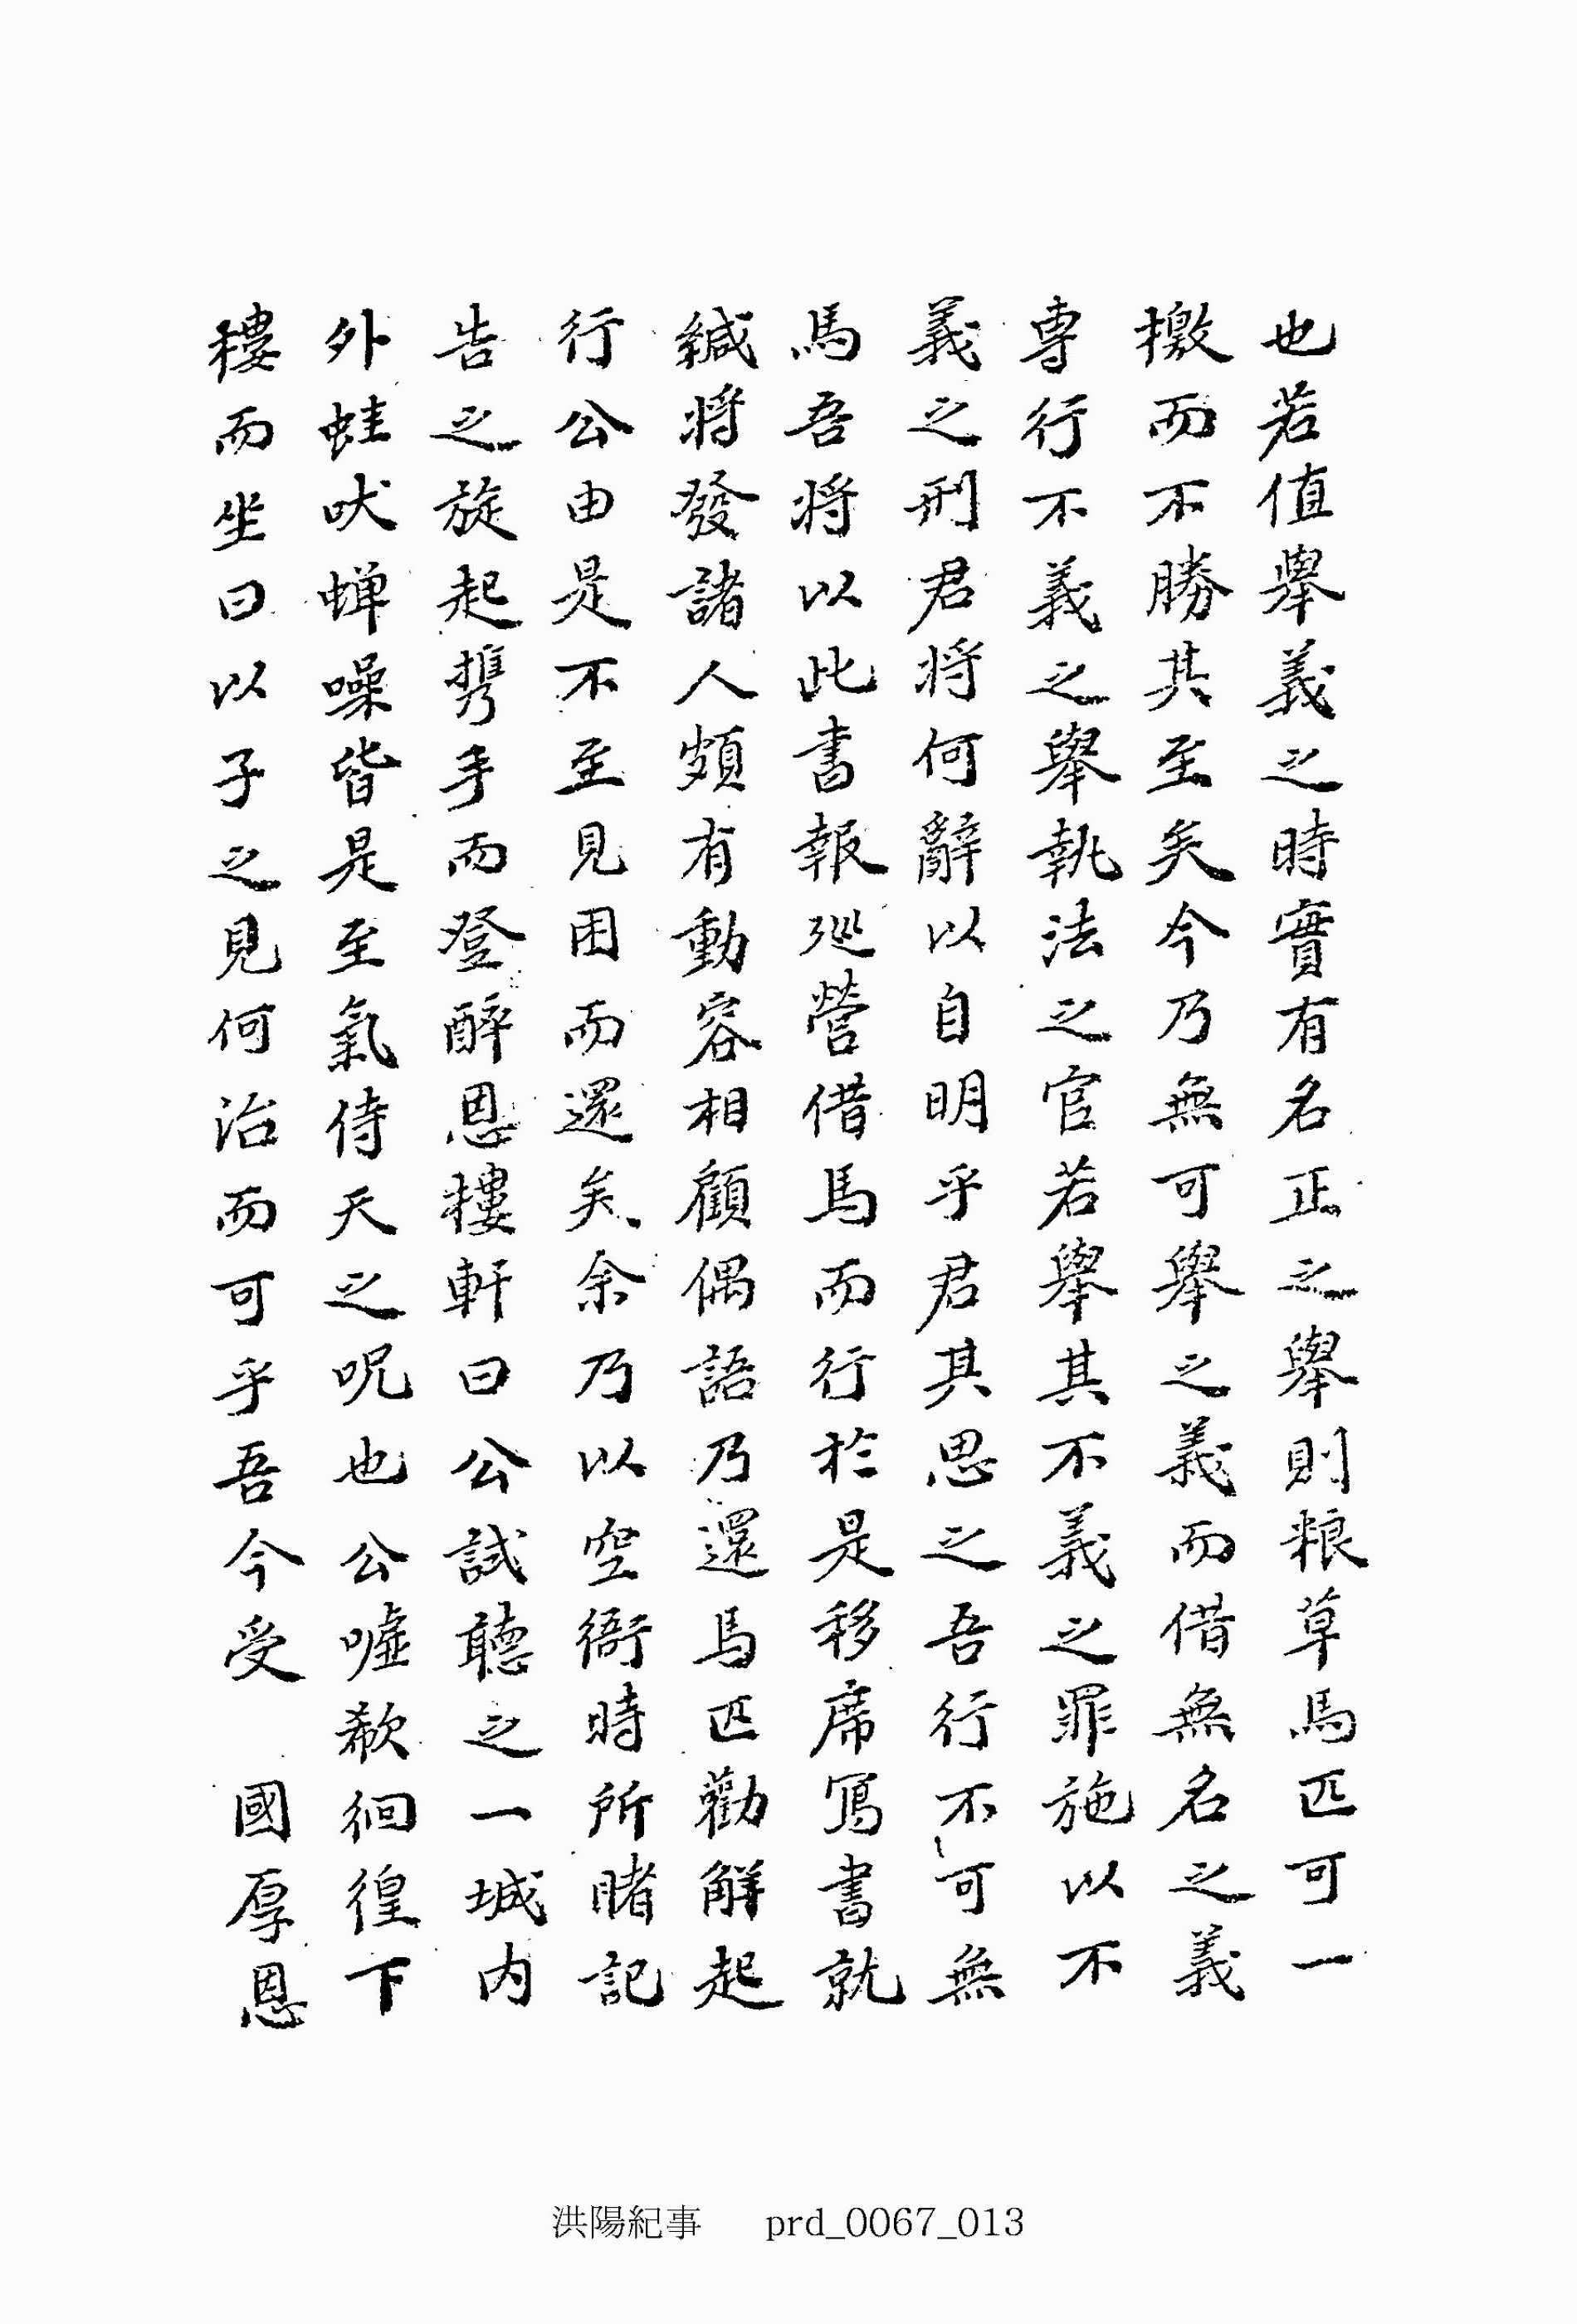 也若值舉義之時實有名正之舉則粮草馬匹可一
檄而不勝其至矣今乃無可舉之義而借無名之義
專行不義之舉執法之官若舉其不義之罪施以不
義之刑君將何辭以自明乎君其思之吾行不可無
馬吾將以此書報巡營借馬而行於是移席寫書就
緘將發諸人頗有動容相顧偶語乃還馬匹勸解起
行公由是不至見困而還矣余乃以空衙時所睹記
告之旋起携手而登醉恩樓軒曰公試聽之一城內
外蛙吠蟬噪皆是至氣侍天之呪也公噓欷徊徨下
樓而坐曰以子之見何治而可乎吾今受 國厚恩
洪陽紀事 prd_0067_013